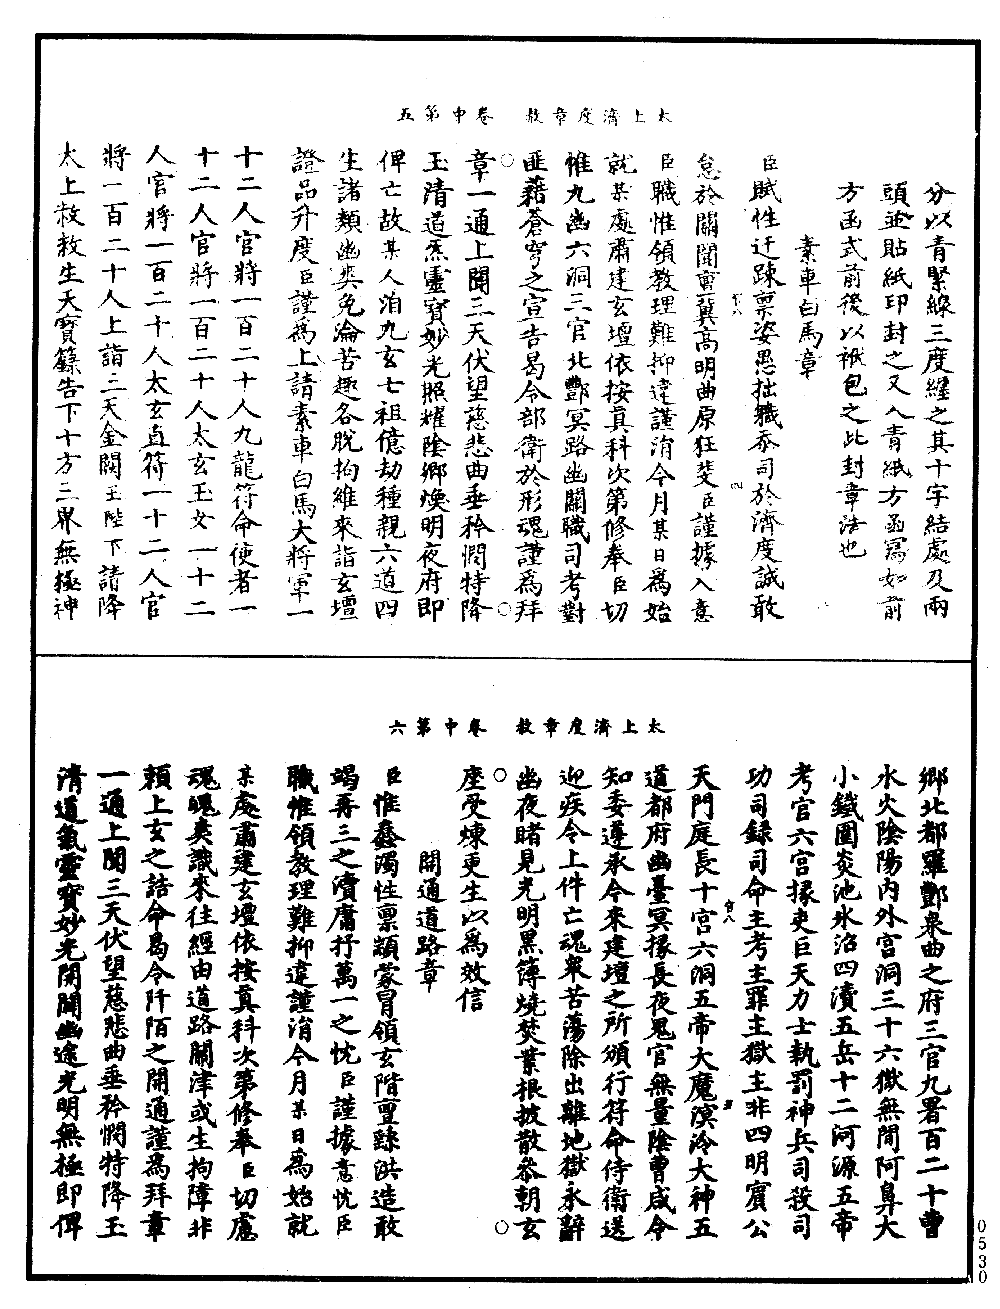 太上濟度章赦　卷中第五
分以青緊線三度縫之其十字結處及兩
頭並貼紙印封之又入青紙方函寫如前
方函式前後以袱包之此封章法也
素車白馬章
臣賦性迂踈稟姿愚拙職忝司於濟度誠敢
怠於關聞冒冀高明曲原狂斐臣謹據入意
臣職惟領教理難抑違謹涓今月某日為始
就某處肅建玄壇依按真科次第修奉臣切
惟九幽六洞三官北酆冥路幽關職司考對
匪藉蒼穹之宣告曷令部衛於形魂謹為拜
章一通上聞三天伏望慈悲曲垂矜憫特降
玉清道炁靈寶妙光照耀陰鄉煥明夜府即
俾亡故某人洎九玄七祖億劫種親六道四
生諸類幽爽免淪苦趣各脫拘維來詣玄壇
證品升度臣謹為上請素車白馬大將軍一
十二人官將一百二十人九龍符命使者一
十二人官將一百二十人太玄玉女一十二
人官將一百二十人太玄直符一十二人官
將一百二十人上詣三天金闕玉陛下請降
太上敕救生天寶籙告下十方三界無極神
太上濟度章赦　卷中第六
鄉北都羅酆泉曲之府三官九署百二十曹
水火陰陽內外宮洞三十六獄無間阿鼻大
小鐵圍炎池氷沼四瀆五岳十二河源五帝
考官六宮掾吏巨天力士執罰神兵司殺司
功司錄司命主考主罪主獄主非四明賓公
天門庭長十宮六洞五帝大魔溟泠大神五
道都府幽臺冥掾長夜鬼官無量陰曹咸令
知委遵承今來建壇之所頒行符命侍衛送
迎疾令上件亡魂衆苦蕩除出離地獄永辭
幽夜睹見光明黑簿燒焚業根披散叅朝玄
座受煉更生以為效信
開通道路章
臣惟蠢濁性稟顓蒙冒領玄階亶緣洪造敢
竭再三之瀆庸抒萬一之忱臣謹據意忱臣
職惟領教理難抑違謹涓今月某日為始就
某處肅建玄壇依按真科次第修奉臣切慮
魂魄爽識來往經由道路關津或生拘障非
賴上玄之誥命曷令阡陌之開通謹為拜章
一通上聞三天伏望慈悲曲垂矜憫特降玉
清道氣靈寶妙光開闢幽途光明無極即俾
0530